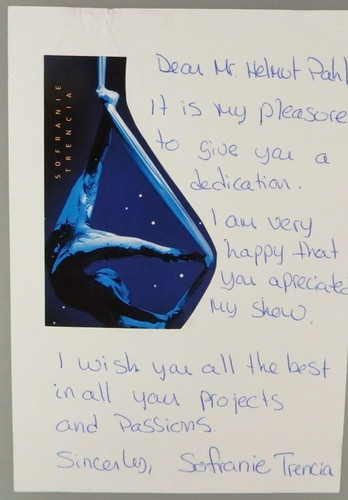 Dear Mr. Helmut Pahl
It is my pleasure
to give you a
dedication.
I am very
happy that
you apreciated
my show.
SOFRANIE
TRENCIA
I wish you all the best
in all your projects
and Passions.
Sincerley, Sofranie Trencia